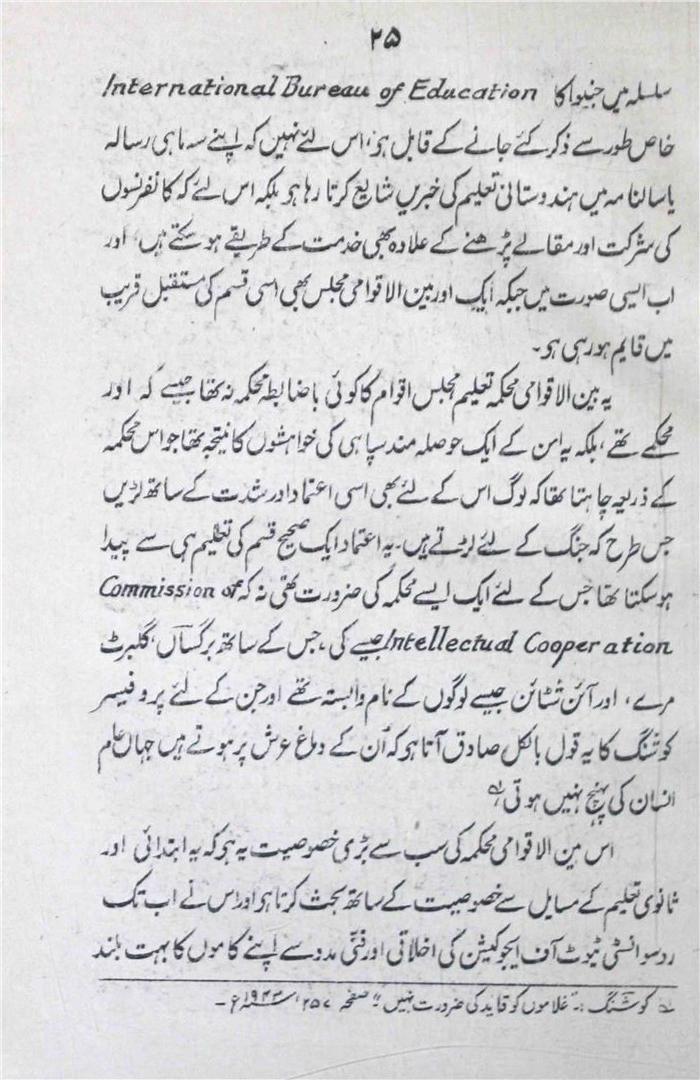 ۲۵
سلسلہ میں جنیوا کا International Bureau of Education
خاص طور سے ذکر کئے جانے کے قابل ہو، اس لئے نہیں کہ اپنے سہ ماہی رسالہ
یا سالنامہ میں ہندوستانی تعلیم کی خبریں شایع کرتا رہا ہو بلکہ اس لئے کہ کانفرنسوں
کی شرکت اور مقالے پڑھنے کے علاوہ بھی خدمت کے طریقے ہو سکتے ہیں، اور
اب ایسی صورت میں جبکہ ایک اور بین الاقوامی مجلس بھی اسی قسم کی مستقبل قریب
میں قایم ہو رہی ہو۔
یہ بین الاقوامی محکمہ تعلیم مجلس اقوام کا کوئی باضابطہ محکمہ نہ تھا جیسے کہ اور
محکمے تھے، بلکہ یہ امن کے ایک حوصلہ مند سپاہی کی خواہشوں کا نتیجہ تھا جو اس محکمہ
کے ذریعہ چاہتا تھا کہ لوگ اس کے لئے بھی اسی اعتماد اور شدت کے ساتھ لڑیں
جس طرح کہ جنگ کے لئے لڑتے ہیں۔ یہ اعتماد ایک صحیح قسم کی تعلیم ہی سے پیدا
ہو سکتا تھا جس کے لئے ایک ایسے محکمہ کی ضرورت تھی نہ کہ Commission of
Intellectual Cooperation جیسے کی، جس کے ساتھ برگساں، گلبرٹ
مرے، اور آئن شٹائن جیسے لوگوں کے نام وابستہ تھے اور جن کے لئے پروفیسر
کوشنگ کا یہ قول بالکل صادق آتا ہو کہ اُن کے دماغ عرش پر ہوتے ہیں جہاں عام
انسان کی پہنچ نہیں ہوتی لہ
اس بین الاقوامی محکمہ کی سب سے بڑی خصوصیت یہ ہو کہ یہ ابتدائی اور
ثانوی تعلیم کے مسایل سے خصوصیت کے ساتھ بحث کرتا ہو اور اس نے اب تک
ردسو انسٹی ٹیوٹ آف ایجوکیشن کی اخلاقی اور فنّی مدد سے اپنے کاموں کا بہت بلند
لہ کوشنگ :۔ "غلاموں کو قاید کی ضرورت نہیں" صفحہ ۲۵۷، ۱۹۴۳ء۔